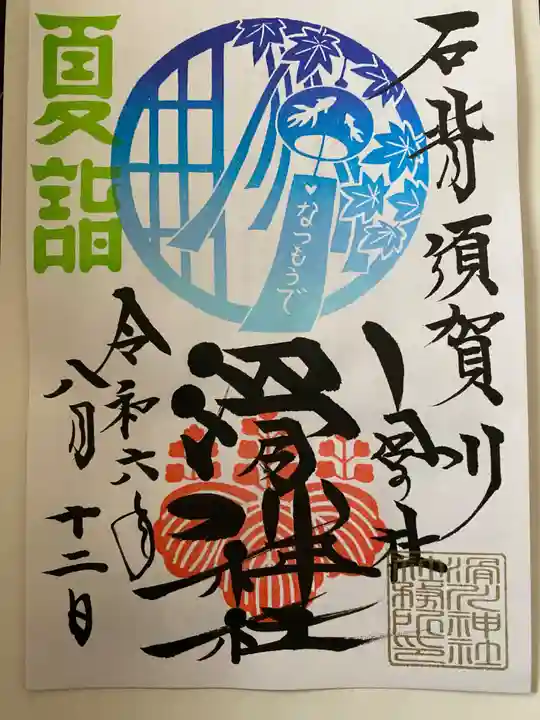 石背須賀川
鎮座
夏詣
なつもうで
滑川神社
令和六年
八月十二日
滑川神社
社務所印